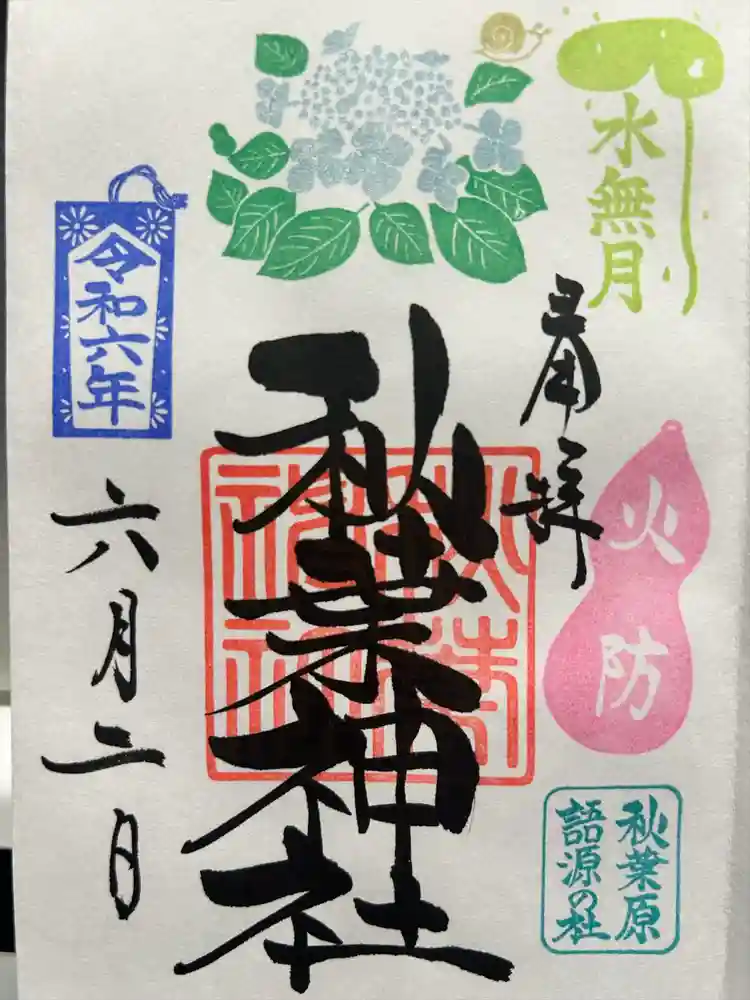 水無月
奉拝
火防
秋葉原
語源の社
秋葉神社
秋葉
神社
令和六年
六月二日